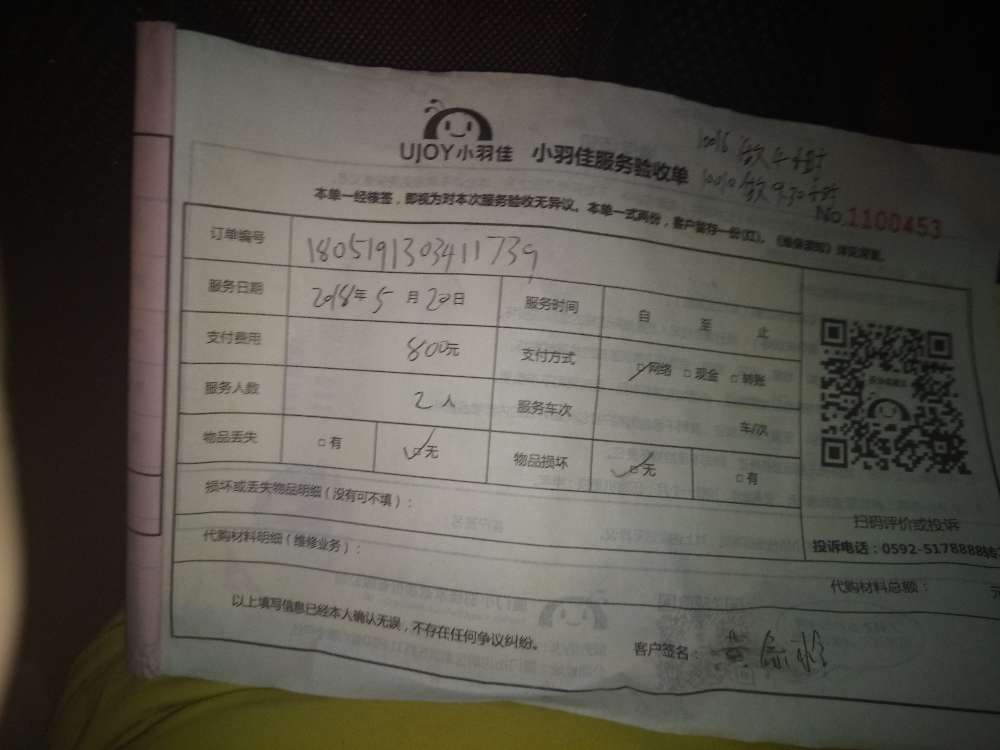 UJOY小羽佳 小羽佳服务验收单
10016 做4小时
10010 做9.30小时
No.1100453
本单一经核签，即视为对本次服务验收无异议。本单一式两份，客户留存一份(红)。
订单编号 180519130341 1739
服务日期 2018年5月20日 服务时间 自 至 止
支付费用 800元 支付方式 □网络 □现金 □转账
服务人数 2人 服务车次 车/次
物品丢失 □有 □无 物品损坏 □无 □有
损坏或丢失物品明细（没有可不填）：
扫码评价或投诉
代购材料明细（维修业务）：
投诉电话：0592-5178888转
代购材料总额：
以上填写信息已经本人确认无误，不存在任何争议纠纷。
客户签名：